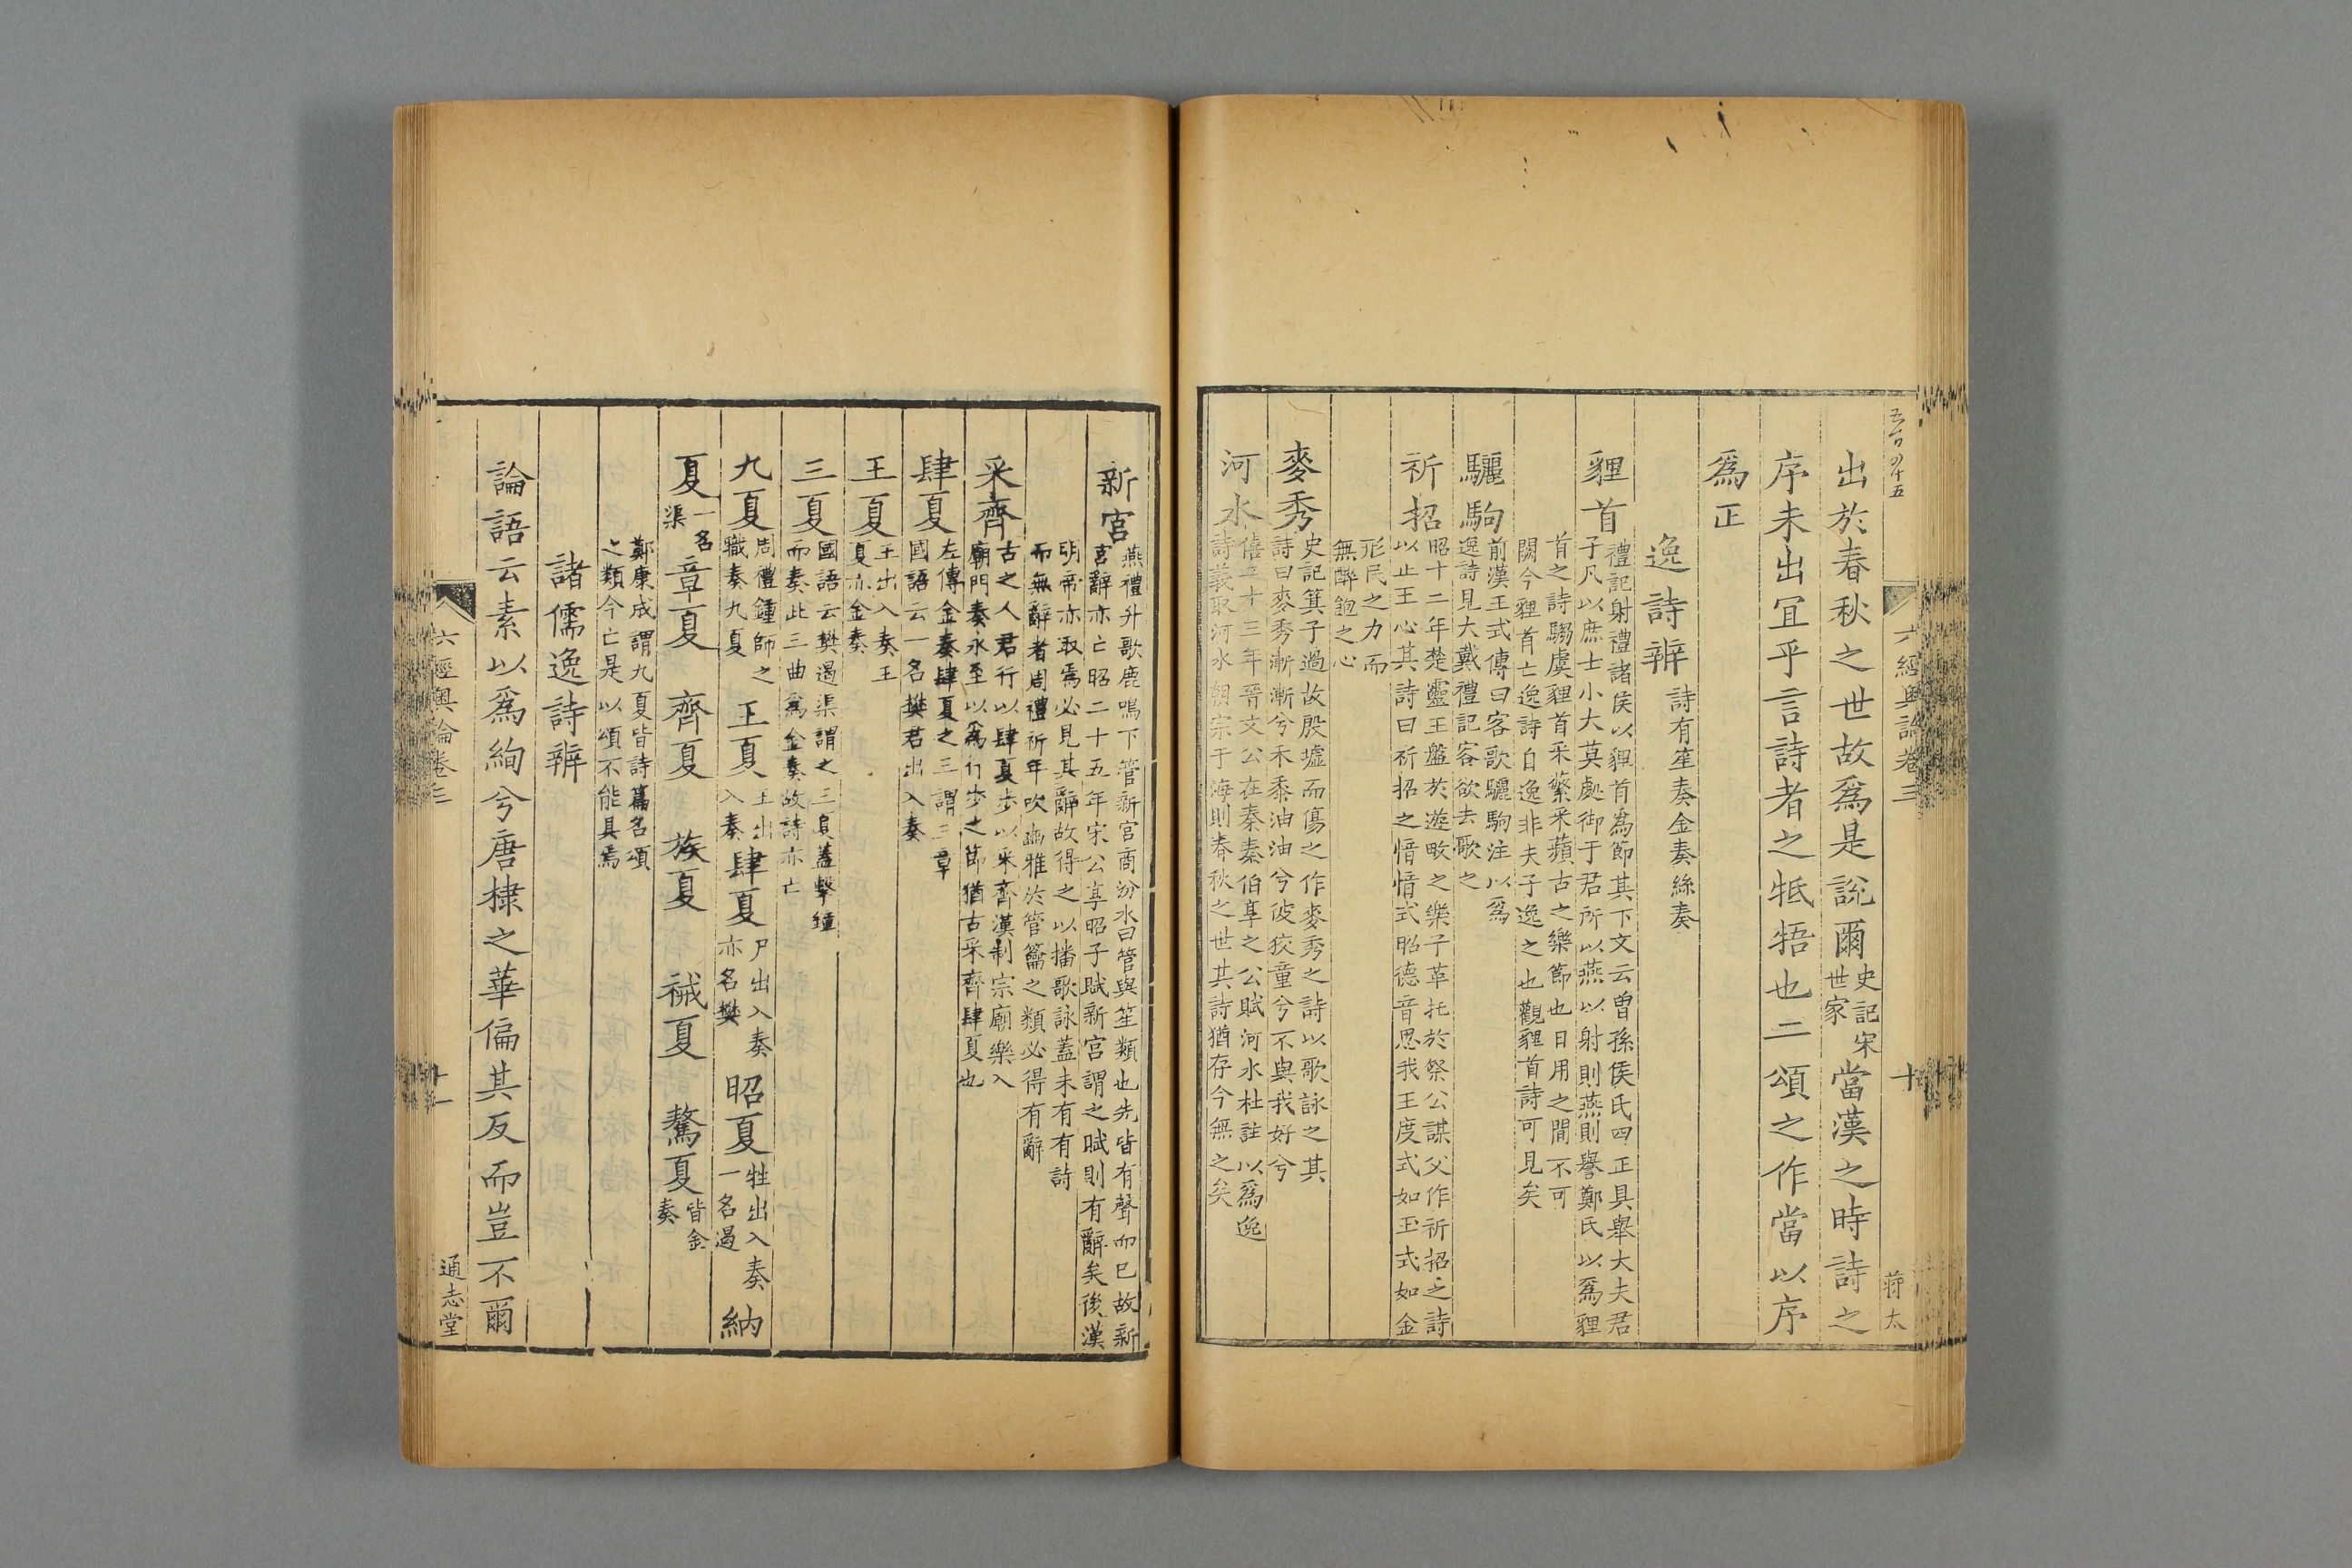 六經奧論卷三
十
出於春秋之世故爲是說爾史記宋世家當漢之時詩之
序未出宜乎言詩者之牴牾也二頌之作當以序
爲正
逸詩辨詩有笙奏金奏絲奏
貍首禮記射禮諸侯以貍首爲節其下文云曽孫侯氏四正具舉大夫君
子凡以庶士小大莫處御于君所以燕以射則燕則譽鄭氏以爲貍
首之詩騶虞貍首采蘩采蘋古之樂節也日用之間不可
闕今貍首亡逸詩自逸非夫子逸之也觀貍首詩可見矣
驪駒前漢王式傳曰客歌驪駒注以爲
逸詩見大戴禮記客欲去歌之
祈招昭十二年楚靈王盤於遊畋之樂子革托於祭公謀父作祈招之詩
以止王心其詩曰祈招之愔愔式昭德音思我王度式如玉式如金
形民之力而
無醉飽之心
麥秀史記箕子過故殷墟而傷之作麥秀之詩以歌詠之其
詩曰麥秀漸漸兮禾黍油油兮彼狡童兮不與我好兮
河水僖二十三年晉文公在秦秦伯享之公賦河水杜註以爲逸
詩義取河水朝宗于海則春秋之世其詩猶存今無之矣
新宮燕禮升歌鹿鳴下管新宮商汾水曰管與笙類也先皆有聲而已故新
宮辭亦亡昭二十五年宋公享昭子賦新宮謂之賦則有辭矣後漢
明帝亦取焉必見其辭故得之以播歌詠蓋未有有詩
而無辭者周禮祈年吹豳雅於管籥之類必得有辭
采齊古之人君行以肆夏步以采齊漢制宗廟樂入
廟門奏永至以爲行步之節猶古采齊肆夏也
肆夏左傳金奏肆夏之三謂三章
國語云一名樊君出入奏
王夏王出入奏王
夏亦金奏
三夏國語云樊遏渠謂之三夏蓋擊鍾
而奏此三曲爲金奏故詩亦亡
九夏周禮鍾師之職奏九夏 王夏王出入奏肆夏尸出入奏亦名樊 昭夏牲出入奏一名遏 納
夏一名渠 章夏 齊夏 族夏 祴夏 驁夏皆金奏
鄭康成謂九夏皆詩篇名頌
之類今亡是以頌不能具焉
諸儒逸詩辨
論語云素以爲絢兮唐棣之華偏其反而豈不爾
六經奧論卷三
十一
通志堂